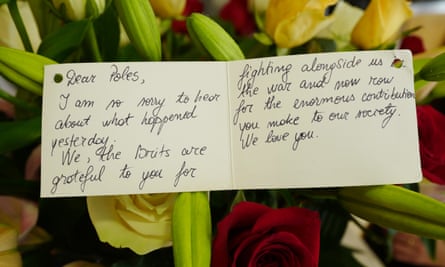 Dear Poles,
I am so sorry to hear
about what happened
yesterday.
We, the Brits are
grateful to you for
fighting alongside us
the war and now row
for the enormous contribution
you make to our society.
We love you.